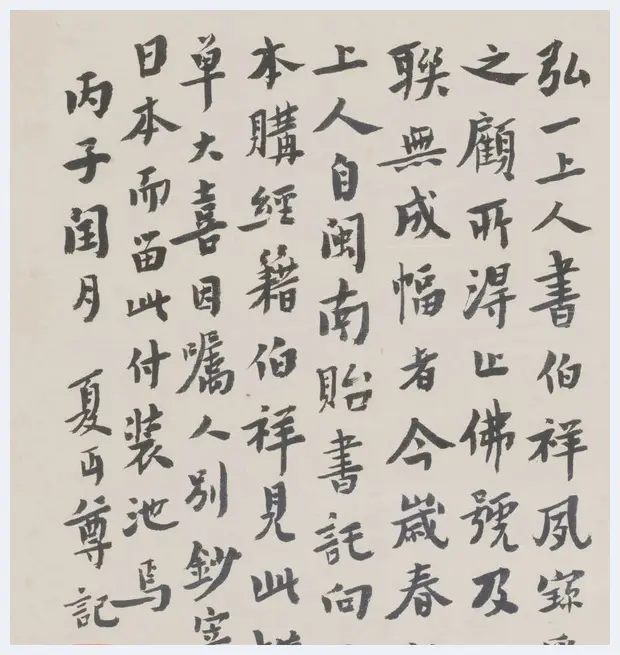 弘一上人書伯祥夙
之顧所得止佛號及
聯無成幅者今歲春
上人自閩南貽書託向
本購經籍伯祥見此
草大喜因嘱人别鈔寄
日本而留此付裝池焉
丙子閏月 夏丏尊記